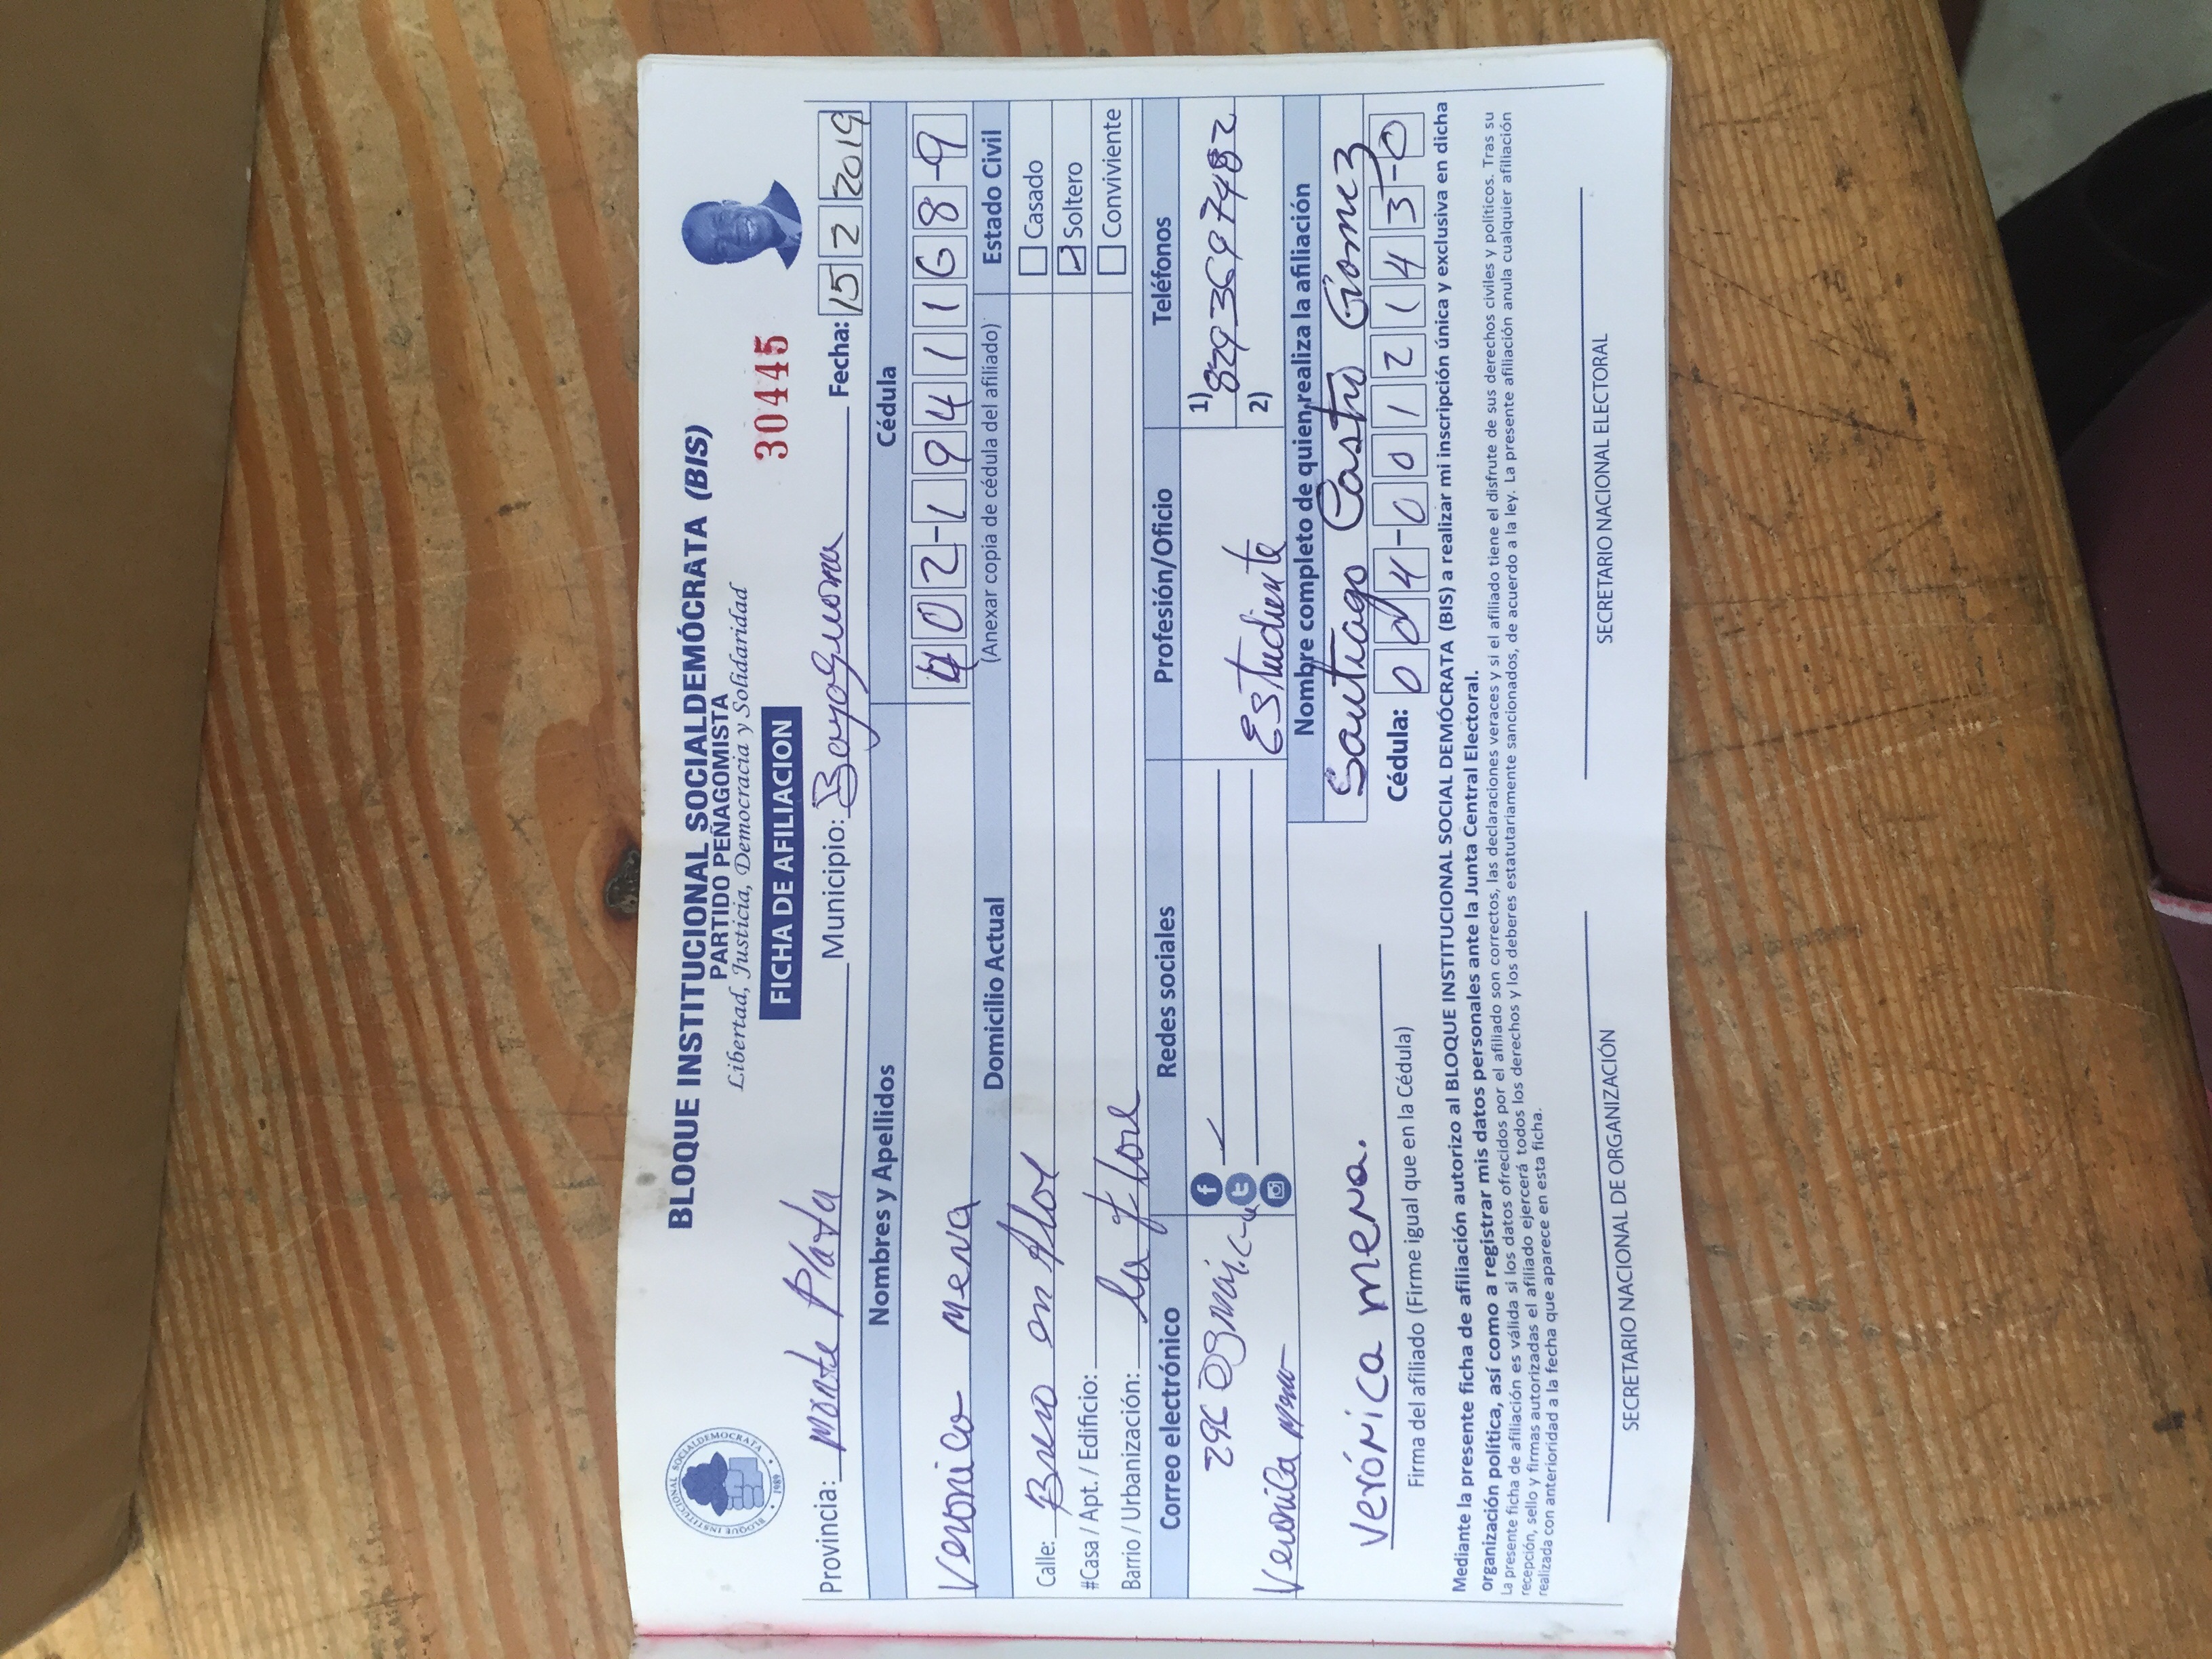 BLOQUE INSTITUCIONAL SOCIALDEMOCRATA
1989
BLOQUE INSTITUCIONAL SOCIALDEMÓCRATA (BIS)
PARTIDO PEÑAGOMISTA
Libertad, Justicia, Democracia y Solidaridad
FICHA DE AFILIACION
30445
Provincia: Monte Plata Municipio: Bayaguana Fecha: 15 2 2019
Nombres y Apellidos Cédula
Veronica Mena 402-1941168-9
Domicilio Actual (Anexar copia de cédula del afiliado) Estado Civil
Calle: en flor Casado
#Casa / Apt. / Edificio: Soltero
Barrio / Urbanización: la flore Conviviente
Correo electrónico Redes sociales Profesión/Oficio Teléfonos
1) 829 3697482
2)
Estudiente
Nombre completo de quien realiza la afiliación
Santiago Castro Gomez
Verónica mena.
Cédula: 004-0012143-0
Firma del afiliado (Firme igual que en la Cédula)
Mediante la presente ficha de afiliación autorizo al BLOQUE INSTITUCIONAL SOCIAL DEMÓCRATA (BIS) a realizar mi inscripción única y exclusiva en dicha
organización política, así como a registrar mis datos personales ante la Junta Central Electoral.
La presente ficha de afiliación es válida si los datos ofrecidos por el afiliado son correctos, las declaraciones veraces y si el afiliado tiene el disfrute de sus derechos civiles y políticos. Tras su
recepción, sello y firmas autorizadas el afiliado ejercerá todos los derechos y los deberes estatutariamente sancionados, de acuerdo a la ley. La presente afiliación anula cualquier afiliación
realizada con anterioridad a la fecha que aparece en esta ficha.
SECRETARIO NACIONAL DE ORGANIZACIÓN SECRETARIO NACIONAL ELECTORAL